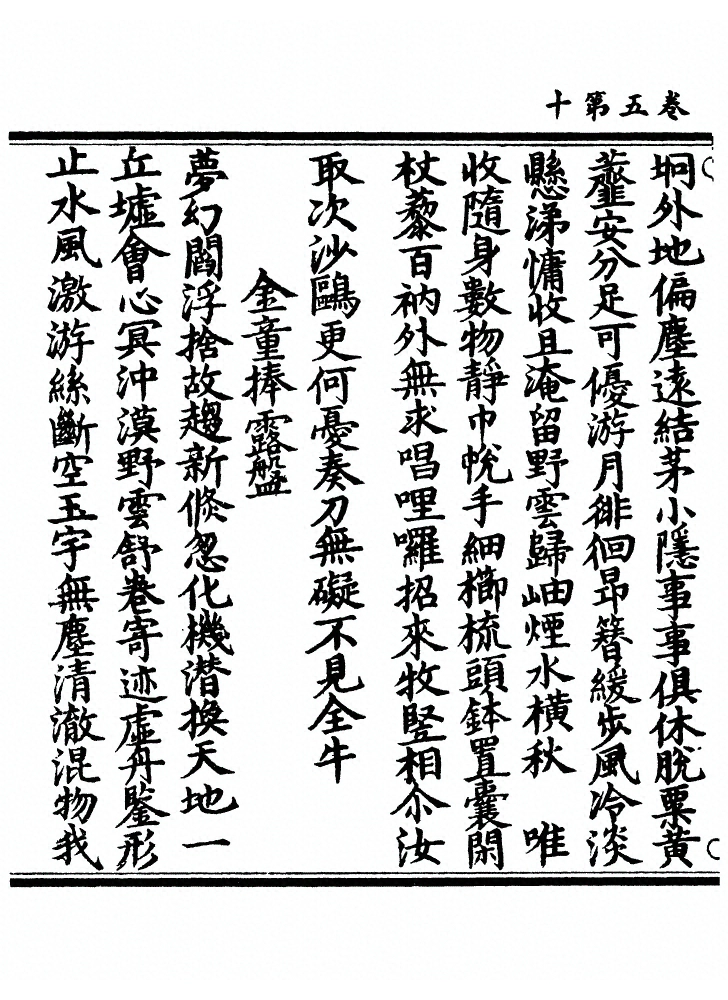 卷五第十
坰外地偏塵遠結茅小隱事事俱休脫粟黃
虀安分足可優游月徘徊昂簪緩步風冷淡
懸涕慵收且淹留野雲歸岫煙水橫秋　唯
收隨身數物靜巾帨手細櫛梳頭鉢置囊閑
杖藜百衲外無求唱哩囉招來牧豎相尒汝
取次沙鷗更何憂奏刀無礙不見全牛
金童捧露盤
夢幻閻浮捨故趨新倏忽化機潛換天地一
丘墟會心冥沖漠野雲舒卷寄迹虛舟鑒形
止水風激游絲斷空玉宇無塵清澈混物我